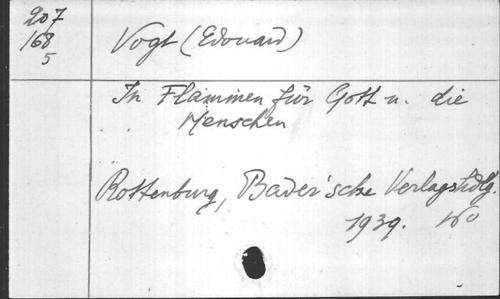 207
168
5
Vogt (Edouard)
In Flammen für Gott u. die
Menschen
Rottenburg, Bader'sche Verlagshdlg.
1939. 16°